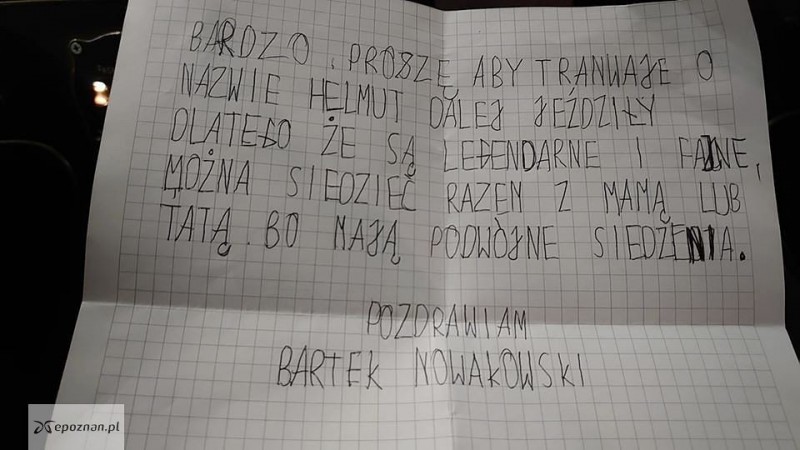 BARDZO. PROSZĘ ABY TRANWAJE O
NAZWIE HELMUT DALEJ JEŹDZIŁY
DLATEGO ŻE SĄ LEGENDARNE I FAJNE,
MOŻNA SIEDZIEĆ RAZEM Z MAMĄ LUB
TATĄ. BO MAJĄ PODWÓJNE SIEDŹENIA.
POZDRAWIAM
BARTEK NOWAKOWSKI
epoznan.pl